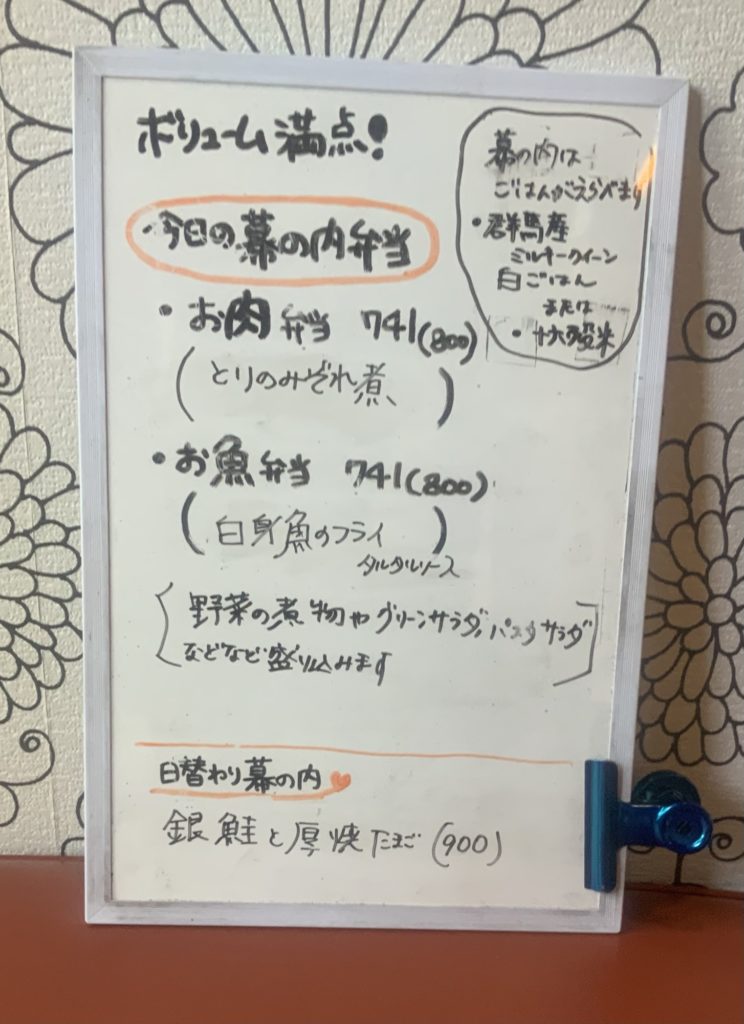 ボリューム満点!
・今日の幕の内弁当
・お肉弁当 741(800)
(とりのみぞれ煮)
・お魚弁当 741(800)
(白身魚のフライ)
タルタルソース
野菜の煮物やグリーンサラダ、パスタサラダ
などなど盛り込みます
日替わり幕の内
銀鮭と厚焼たまご(900)
幕の内は
ごはんがえらべます
・群馬産
ミルキークイーン
白ごはん
または
・十六穀米